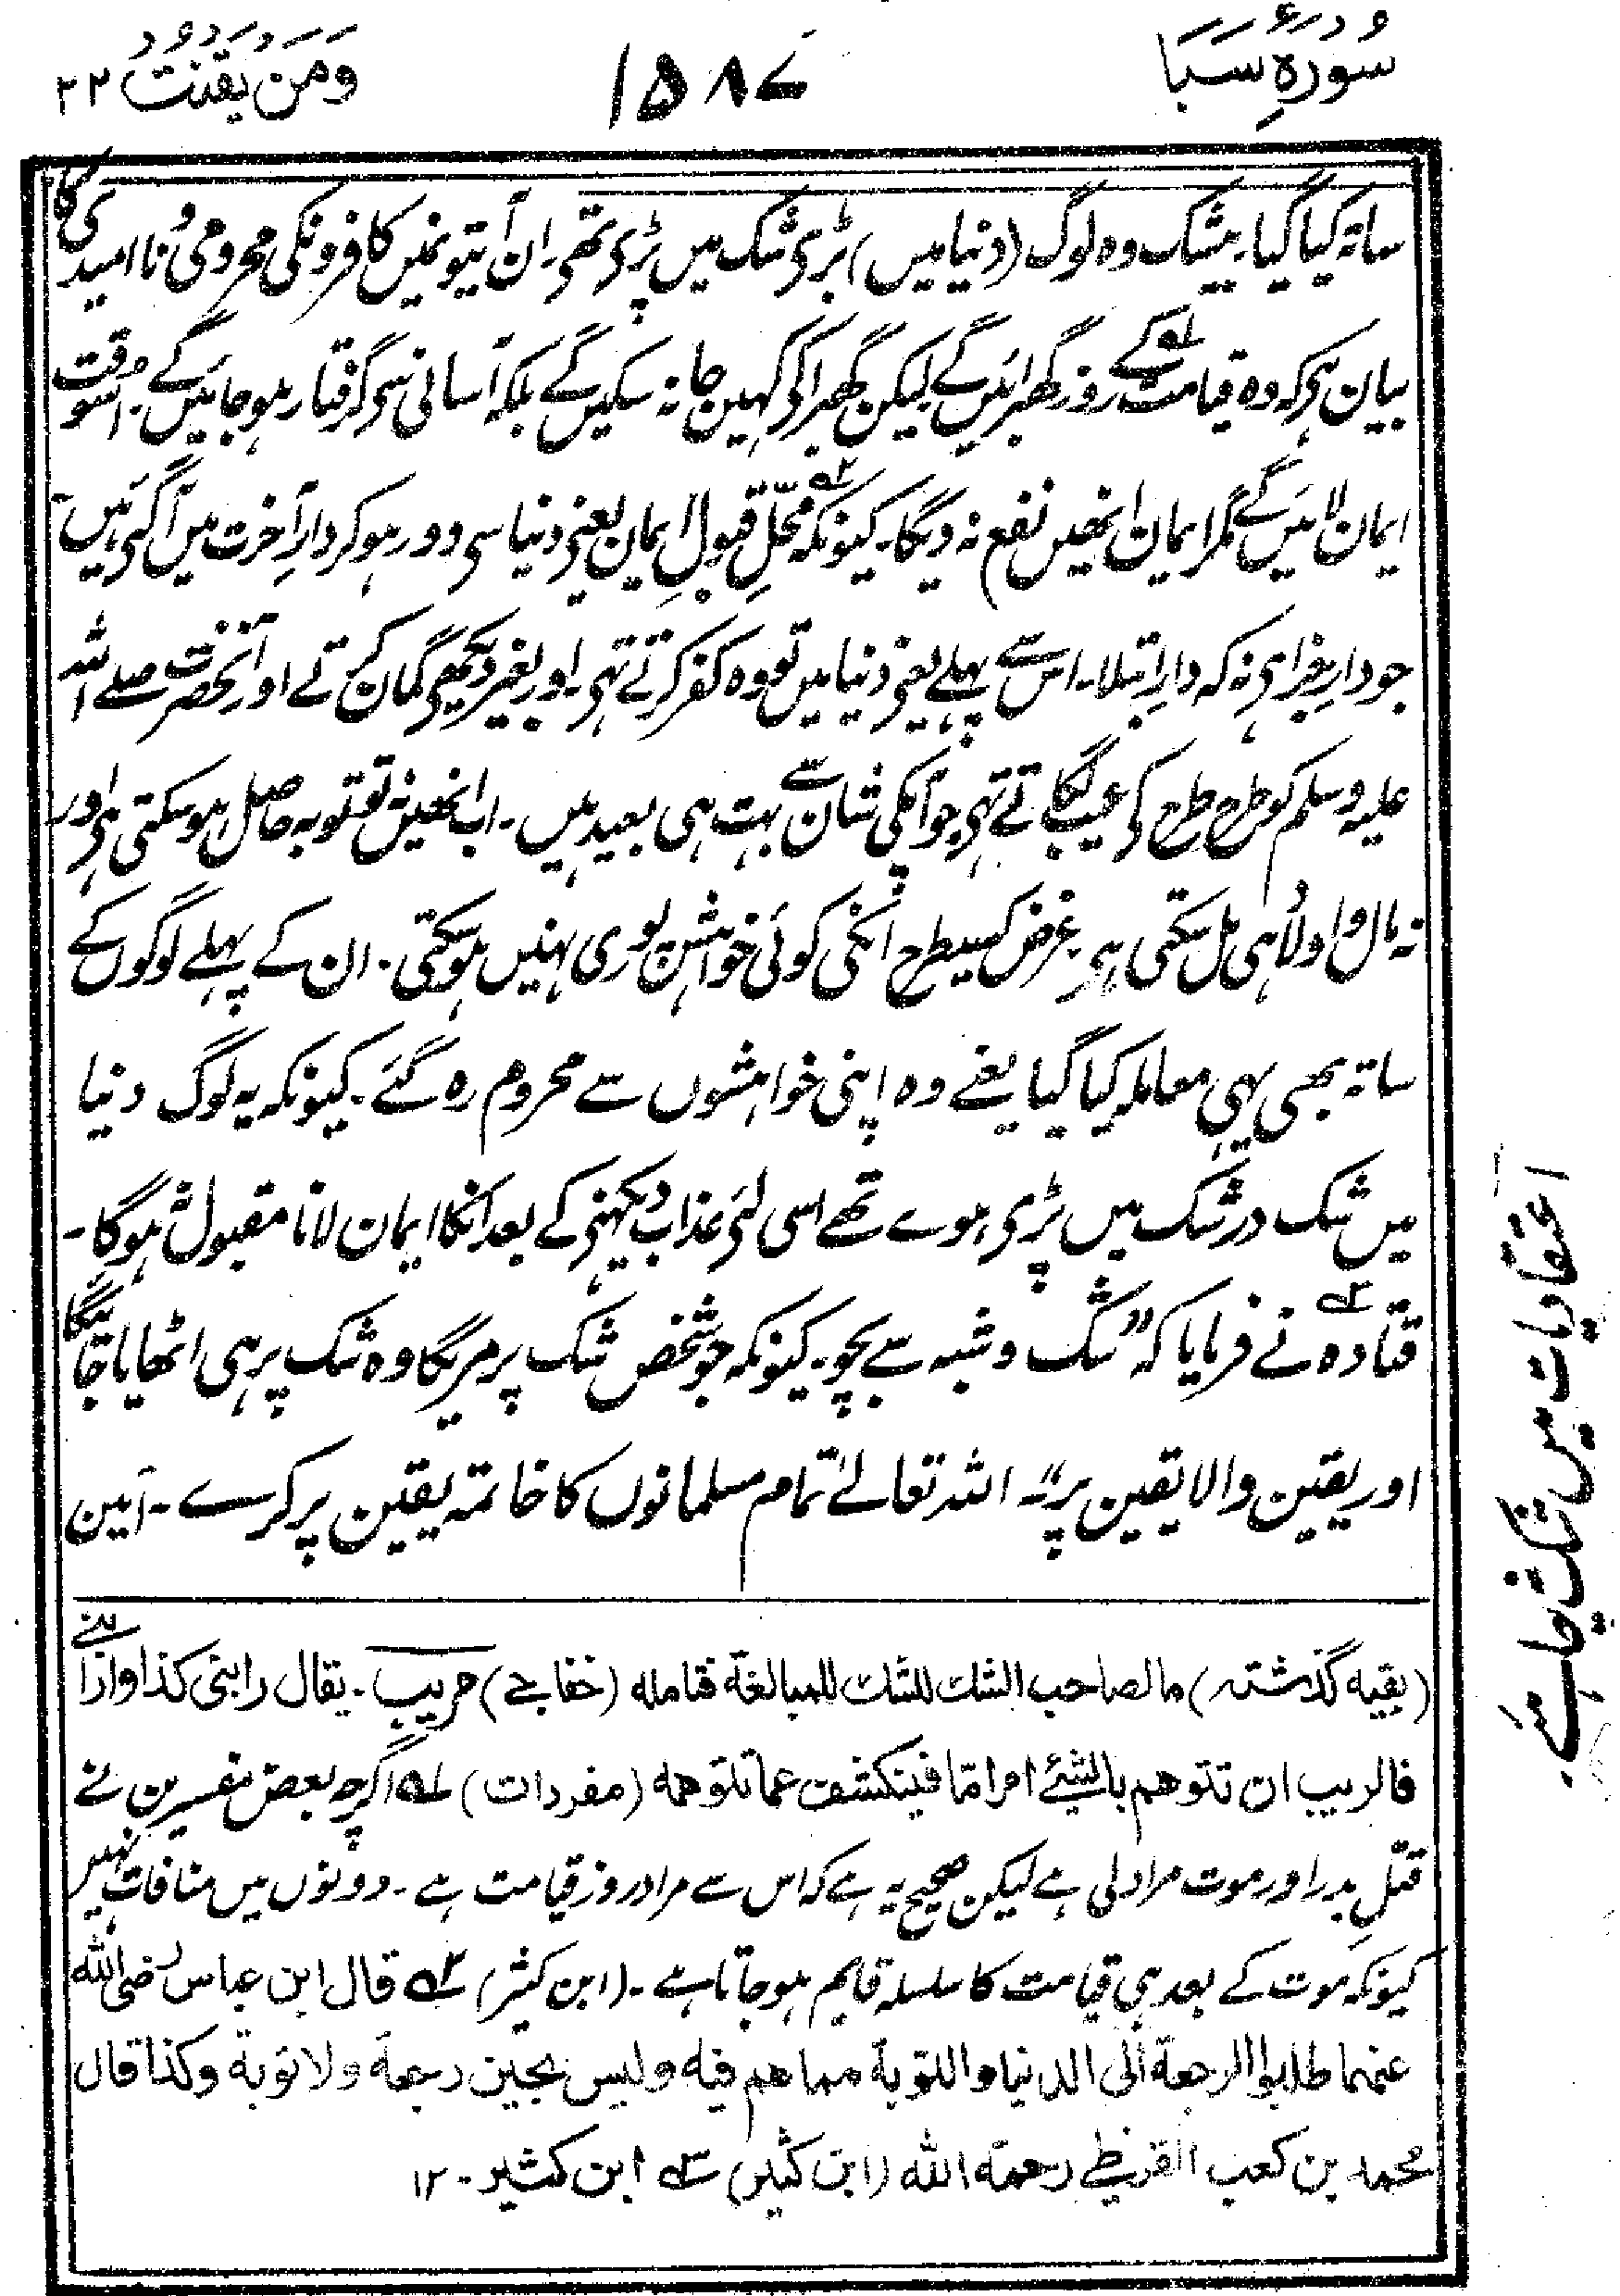 سُورَۂِ سَبَا
۱۵۸۷
وَمَن یَقنُت ۲۲
ساتہ کیا گیا۔ بیشک وہ لوگ (دنیا میں) بڑی شک میں پڑی تھی۔ ان آیتونمیں کافرونکی محرومی و نا امیدی کا
بیان ہی کہ وہ قیامت کے ۱؎ روز گھبرائیں گے لیکن گھبرا کی کہیں جا نہ سکیں گے بلکہ آسانی سی گرفتار ہو جائیں گے۔ اُسوقت
ایمان لائیں گے مگر ایمان انھیں نفع نہ دیگا۔ کیونکہ ۲؎ محلِّ قبولِ ایمان یعنی دنیا سی دور ہو کر دارِ آخرت میں آگئی ہیں۔
جو دارِ جزا ہی نہ کہ دارِ ابتلا۔ اس سے پہلے یعنی دنیا میں تو وہ کفر کرتے تہی۔ اور بغیر دیکھی گمان کرتے تے اور آنحضرت صلے اللہ
علیہ وسلم کو طرح طرح کی عیب لگاتے تہی جو آپکی شان سے بہت ہی بعید ہیں۔ اب انھیں نہ تو توبہ حاصل ہو سکتی ہی اور
نہ مال و اولاد ہی مل سکتی ہی۔ غرض کسیطرح انکی کوئی خواہش پوری نہیں ہو سکتی۔ ان کے پہلے لوگوں کے
ساتہ بھی یہی معاملہ کیا گیا یعنے وہ اپنی خواہشوں سے محروم رہ گئے۔ کیونکہ یہ لوگ دنیا
میں شک در شک میں پڑی ہوے تھے اسی لئی عذاب دیکھنی کے بعد انکا ایمان لانا مقبول نہ ہوگا۔
قتادہ ۳؎ نے فرمایا کہ ”شک و شبہ سے بچو۔ کیونکہ جو شخص شک پر مریگا وہ شک پر ہی اٹھایا جائیگا
اور یقین والا یقین پر“۔ اللہ تعالےٰ تمام مسلمانوں کا خاتمہ یقین پر کرے۔ آمین
اعتقادیات میں شک نہ چاہئے۔
(بقیہ گذشتہ) مالصاحب الشك للشك للمبالغة فتامله (خفاجے) مریب۔ یقال رابنی کذا وارابنے
فالریب ان تتوهم بالشیئے امرا مّا فینکشف عما تتوهمه (مفردات) ۱؎ اگرچہ بعض مفسرین نے
قتلِ بدر اور موت مراد لی ہے لیکن صحیح یہ ہے کہ اس سے مراد روزِ قیامت ہے۔ دونوں میں منافات نہیں
کیونکہ موت کے بعد ہی قیامت کا سلسلہ قایم ہو جاتا ہے۔ (ابن کثیر) ۲؎ قال ابن عباس رضی اللہ
عنہما طلبوا الرجعة الی الدنیا والتوبة مما هم فیه ولیس بحین رجعة ولا توبة وکذا قال
محمد بن کعب القرظی رحمة اللہ (ابن کثیر) ۳؎ ابن کثیر۔ ۱۲